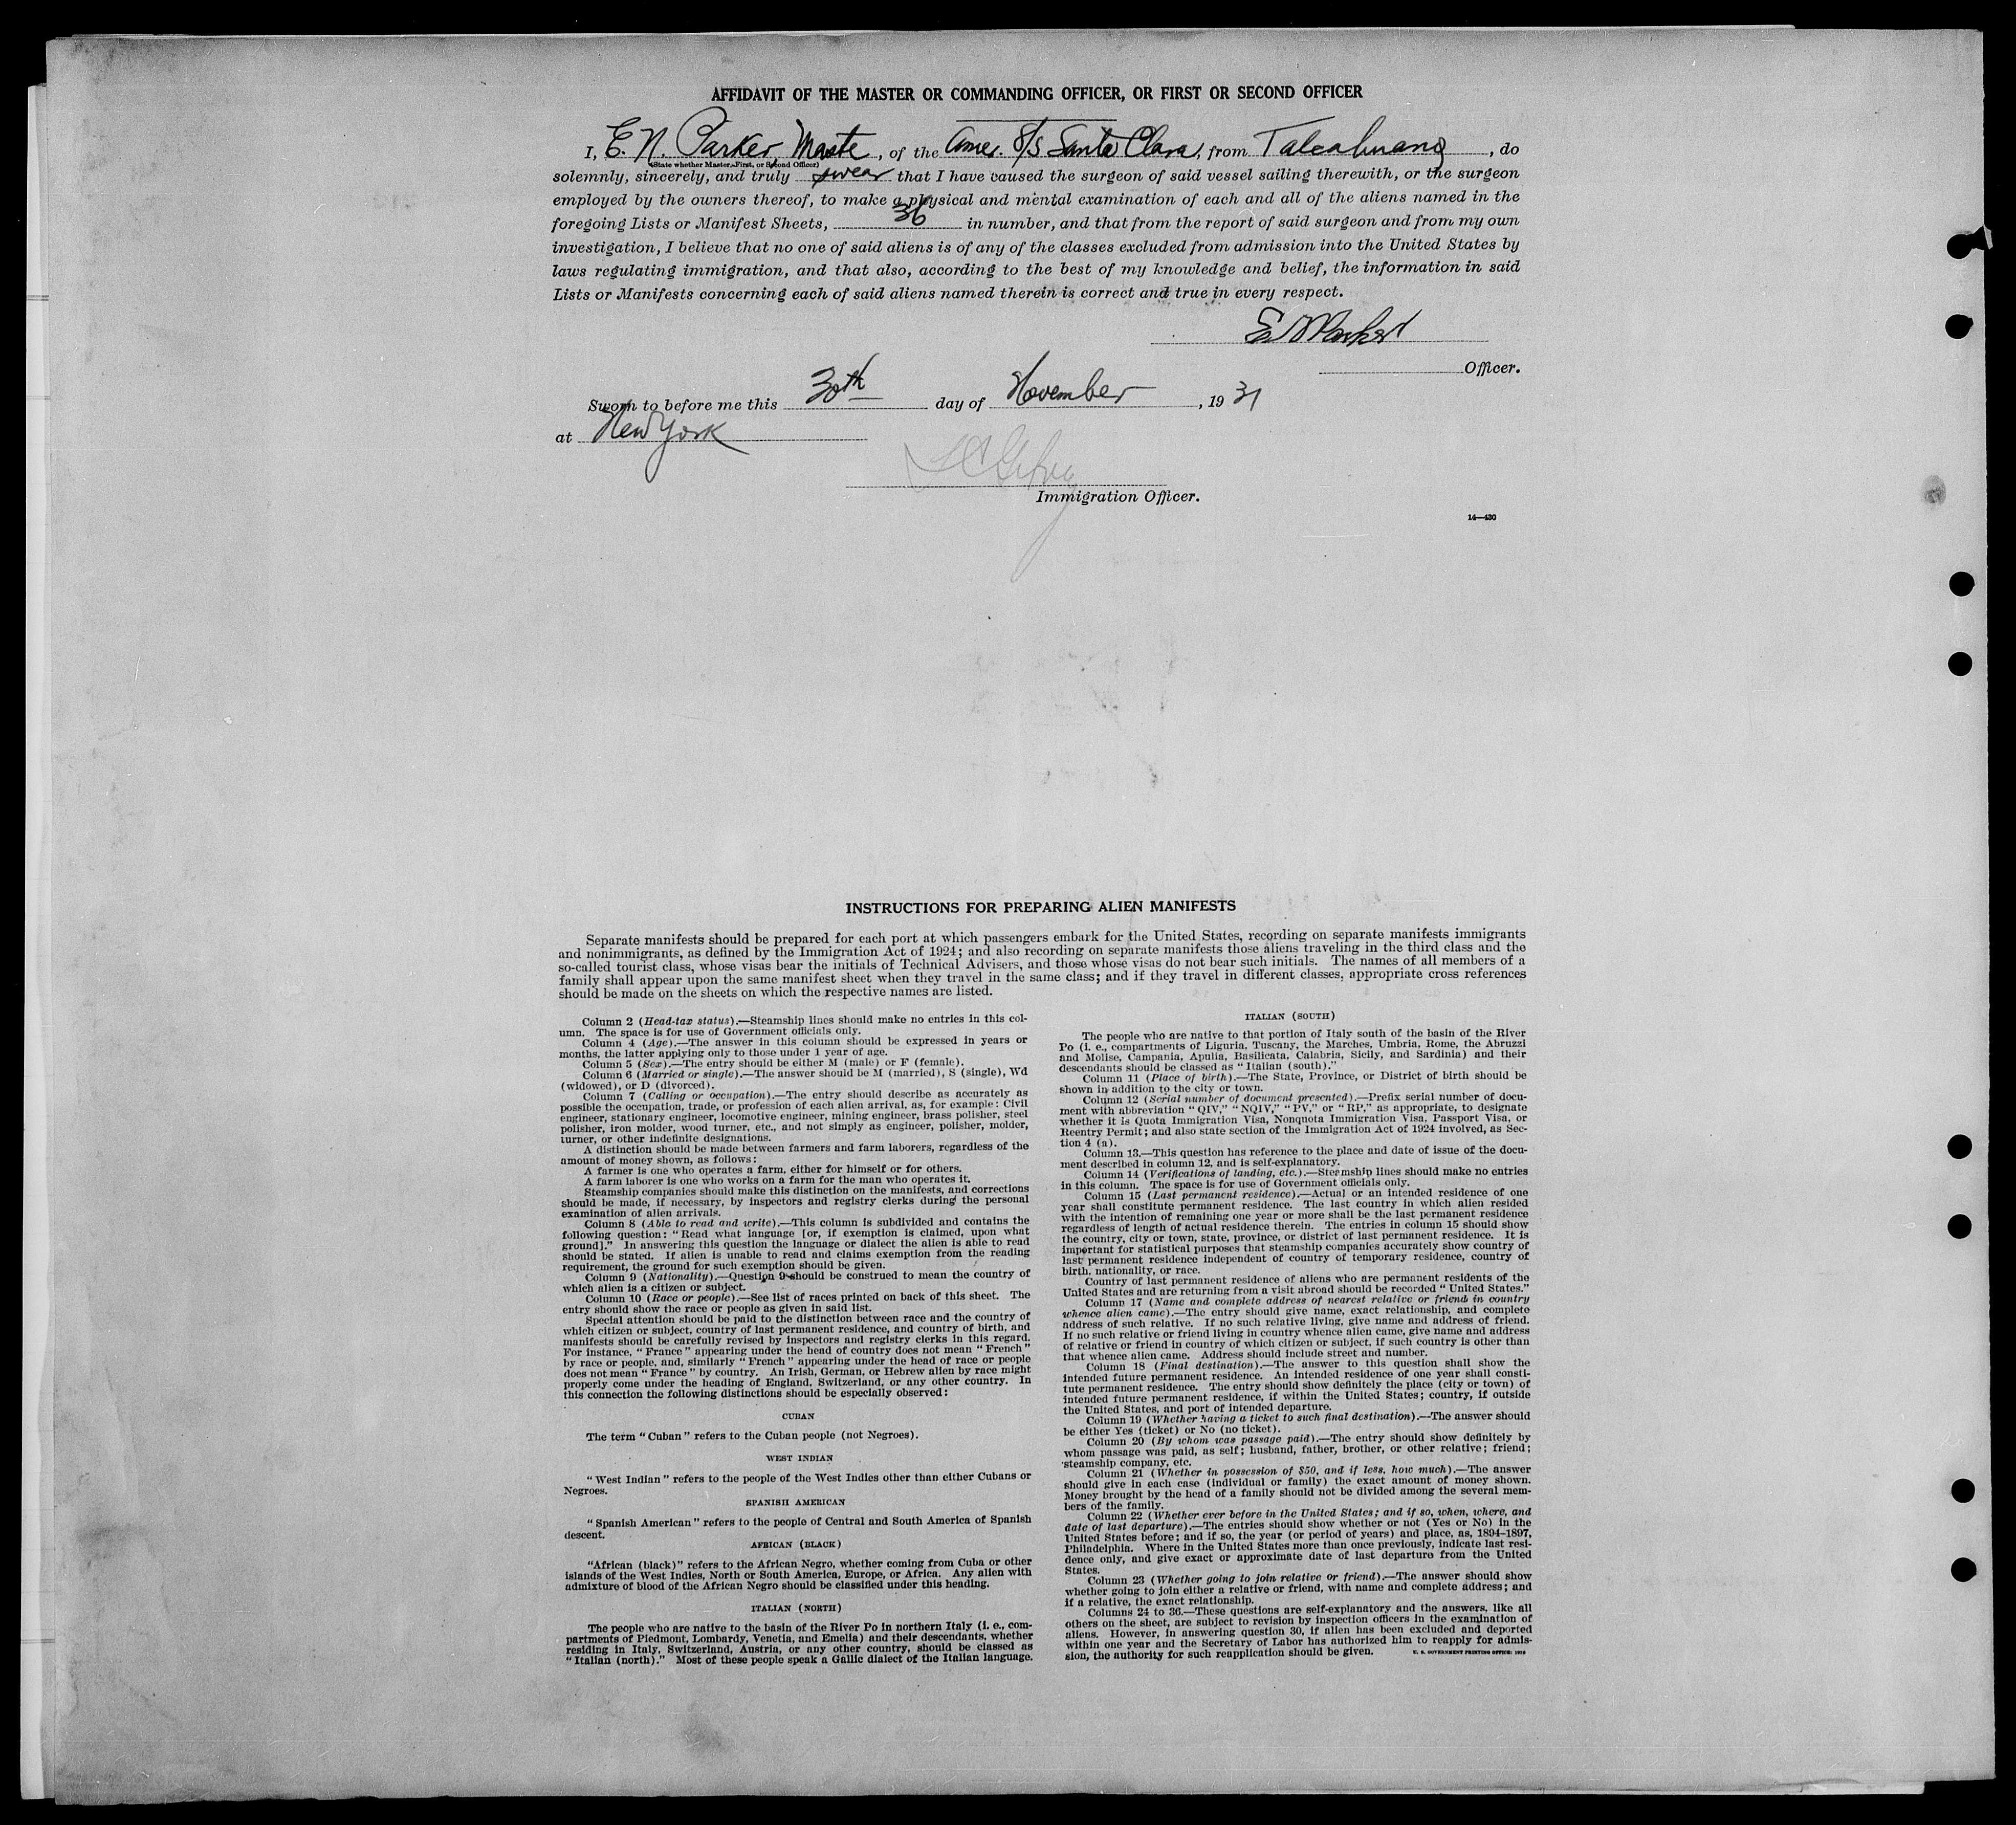 AFFIDAVIT OF THE MASTER OR COMMANDING OFFICER, OR FIRST OR SECOND OFFICER
I, E. N. Parker, Maste, of the Amer. S/S Santa Clara, from Talcahuano, do
(State whether Master, First, or Second Officer)
solemnly, sincerely, and truly swear that I have caused the surgeon of said vessel sailing therewith, or the surgeon
employed by the owners thereof, to make a physical and mental examination of each and all of the aliens named in the
foregoing Lists or Manifest Sheets, 36 in number, and that from the report of said surgeon and from my own
investigation, I believe that no one of said aliens is of any of the classes excluded from admission into the United States by
laws regulating immigration, and that also, according to the best of my knowledge and belief, the information in said
Lists or Manifests concerning each of said aliens named therein is correct and true in every respect.
E N Parker
Officer.
Sworn to before me this 30th day of November, 1931
at New York
Immigration Officer.
14—430
INSTRUCTIONS FOR PREPARING ALIEN MANIFESTS
Separate manifests should be prepared for each port at which passengers embark for the United States, recording on separate manifests immigrants
and nonimmigrants, as defined by the Immigration Act of 1924; and also recording on separate manifests those aliens traveling in the third class and the
so-called tourist class, whose visas bear the initials of Technical Advisers, and those whose visas do not bear such initials. The names of all members of a
family shall appear upon the same manifest sheet when they travel in the same class; and if they travel in different classes, appropriate cross references
should be made on the sheets on which the respective names are listed.
Column 2 (Head-tax status).—Steamship lines should make no entries in this col-
umn. The space is for use of Government officials only.
Column 4 (Age).—The answer in this column should be expressed in years or
months, the latter applying only to those under 1 year of age.
Column 5 (Sex).—The entry should be either M (male) or F (female).
Column 6 (Married or single).—The answer should be M (married), S (single), Wd
(widowed), or D (divorced).
Column 7 (Calling or occupation).—The entry should describe as accurately as
possible the occupation, trade, or profession of each alien arrival, as, for example: Civil
engineer, stationary engineer, locomotive engineer, mining engineer, brass polisher, steel
polisher, iron molder, wood turner, etc., and not simply as engineer, polisher, molder,
turner, or other indefinite designations.
A distinction should be made between farmers and farm laborers, regardless of the
amount of money shown, as follows:
A farmer is one who operates a farm, either for himself or for others.
A farm laborer is one who works on a farm for the man who operates it.
Steamship companies should make this distinction on the manifests, and corrections
should be made, if necessary, by inspectors and registry clerks during the personal
examination of alien arrivals.
Column 8 (Able to read and write).—This column is subdivided and contains the
following question: "Read what language [or, if exemption is claimed, upon what
ground]." In answering this question the language or dialect the alien is able to read
should be stated. If alien is unable to read and claims exemption from the reading
requirement, the ground for such exemption should be given.
Column 9 (Nationality).—Question 9 should be construed to mean the country of
which alien is a citizen or subject.
Column 10 (Race or people).—See list of races printed on back of this sheet. The
entry should show the race or people as given in said list.
Special attention should be paid to the distinction between race and the country of
which citizen or subject, country of last permanent residence, and country of birth, and
manifests should be carefully revised by inspectors and registry clerks in this regard.
For instance, "France" appearing under the head of country does not mean "French"
by race or people, and, similarly "French" appearing under the head of race or people
does not mean "France" by country. An Irish, German, or Hebrew alien by race might
properly come under the heading of England, Switzerland, or any other country. In
this connection the following distinctions should be especially observed:
CUBAN
The term "Cuban" refers to the Cuban people (not Negroes).
WEST INDIAN
"West Indian" refers to the people of the West Indies other than either Cubans or
Negroes.
SPANISH AMERICAN
"Spanish American" refers to the people of Central and South America of Spanish
descent.
AFRICAN (BLACK)
"African (black)" refers to the African Negro, whether coming from Cuba or other
islands of the West Indies, North or South America, Europe, or Africa. Any alien with
admixture of blood of the African Negro should be classified under this heading.
ITALIAN (NORTH)
The people who are native to the basin of the River Po in northern Italy (i. e., com-
partments of Piedmont, Lombardy, Venetia, and Emelia) and their descendants, whether
residing in Italy, Switzerland, Austria, or any other country, should be classed as
"Italian (north)." Most of these people speak a Gallic dialect of the Italian language.
ITALIAN (SOUTH)
The people who are native to that portion of Italy south of the basin of the River
Po (i. e., compartments of Liguria, Tuscany, the Marches, Umbria, Rome, the Abruzzi
and Molise, Campania, Apulia, Basilicata, Calabria, Sicily, and Sardinia) and their
descendants should be classed as "Italian (south)."
Column 11 (Place of birth).—The State, Province, or District of birth should be
shown in addition to the city or town.
Column 12 (Serial number of document presented).—Prefix serial number of docu-
ment with abbreviation "QIV," "NQIV," "PV," or "RP," as appropriate, to designate
whether it is Quota Immigration Visa, Nonquota Immigration Visa, Passport Visa, or
Reentry Permit; and also state section of the Immigration Act of 1924 involved, as Sec-
tion 4 (a).
Column 13.—This question has reference to the place and date of issue of the docu-
ment described in column 12, and is self-explanatory.
Column 14 (Verifications of landing, etc.).—Steamship lines should make no entries
in this column. The space is for use of Government officials only.
Column 15 (Last permanent residence).—Actual or an intended residence of one
year shall constitute permanent residence. The last country in which alien resided
with the intention of remaining one year or more shall be the last permanent residence
regardless of length of actual residence therein. The entries in column 15 should show
the country, city or town, state, province, or district of last permanent residence. It is
important for statistical purposes that steamship companies accurately show country of
last permanent residence independent of country of temporary residence, country of
birth, nationality, or race.
Country of last permanent residence of aliens who are permanent residents of the
United States and are returning from a visit abroad should be recorded "United States."
Column 17 (Name and complete address of nearest relative or friend in country
whence alien came).—The entry should give name, exact relationship, and complete
address of such relative. If no such relative living, give name and address of friend.
If no such relative or friend living in country whence alien came, give name and address
of relative or friend in country of which citizen or subject, if such country is other than
that whence alien came. Address should include street and number.
Column 18 (Final destination).—The answer to this question shall show the
intended future permanent residence. An intended residence of one year shall consti-
tute permanent residence. The entry should show definitely the place (city or town) of
intended future permanent residence, if within the United States; country, if outside
the United States, and port of intended departure.
Column 19 (Whether having a ticket to such final destination).—The answer should
be either Yes (ticket) or No (no ticket).
Column 20 (By whom was passage paid).—The entry should show definitely by
whom passage was paid, as self; husband, father, brother, or other relative; friend;
steamship company, etc.
Column 21 (Whether in possession of $50, and if less, how much).—The answer
should give in each case (individual or family) the exact amount of money shown.
Money brought by the head of a family should not be divided among the several mem-
bers of the family.
Column 22 (Whether ever before in the United States; and if so, when, where, and
date of last departure).—The entries should show whether or not (Yes or No) in the
United States before; and if so, the year (or period of years) and place, as, 1894–1897,
Philadelphia. Where in the United States more than once previously, indicate last resi-
dence only, and give exact or approximate date of last departure from the United
States.
Column 23 (Whether going to join relative or friend).—The answer should show
whether going to join either a relative or friend, with name and complete address; and
if a relative, the exact relationship.
Columns 24 to 36.—These questions are self-explanatory and the answers, like all
others on the sheet, are subject to revision by inspection officers in the examination of
aliens. However, in answering question 30, if alien has been excluded and deported
within one year and the Secretary of Labor has authorized him to reapply for admis-
sion, the authority for such reapplication should be given.
U. S. GOVERNMENT PRINTING OFFICE: